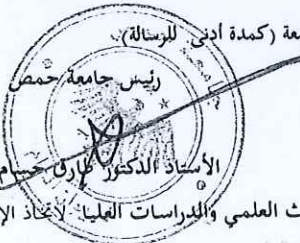 عة (كمدة أدنى للرسالة).
رئيس جامعة حمص
الأستاذ الدكتور طارق حسام
ث العلمي والدراسات العليا لاتخاذ الإ